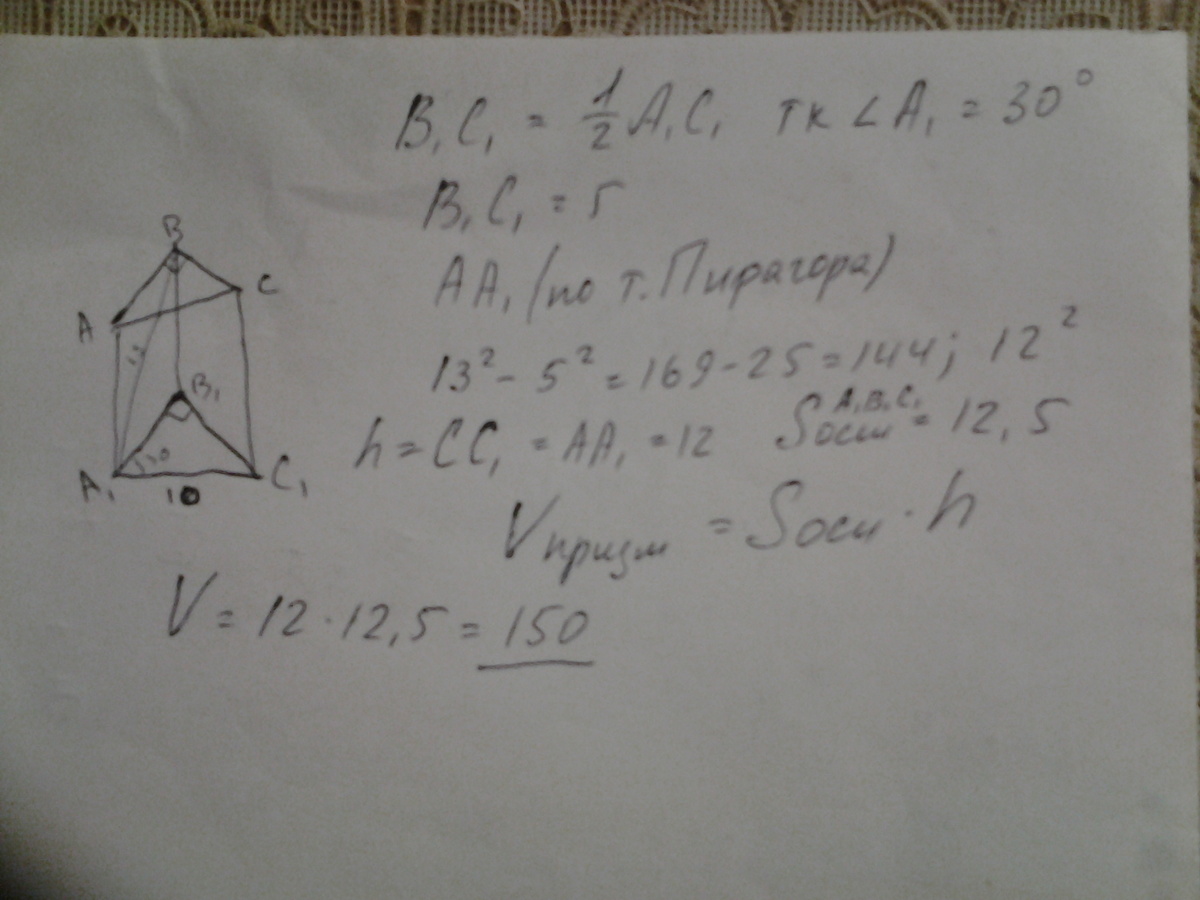 B₁C₁ = 1/2 A₁C₁ тк ∠A₁ = 30°
B₁C₁ = 5
AA₁ (по т. Пифагора)
13² - 5² = 169 - 25 = 144; 12²
h = CC₁ = AA₁ = 12 Sосн A₁B₁C₁ = 12,5
Vпризм = Sосн · h
V = 12 · 12,5 = 150
B
A
C
13
B₁
30
A₁
10
C₁